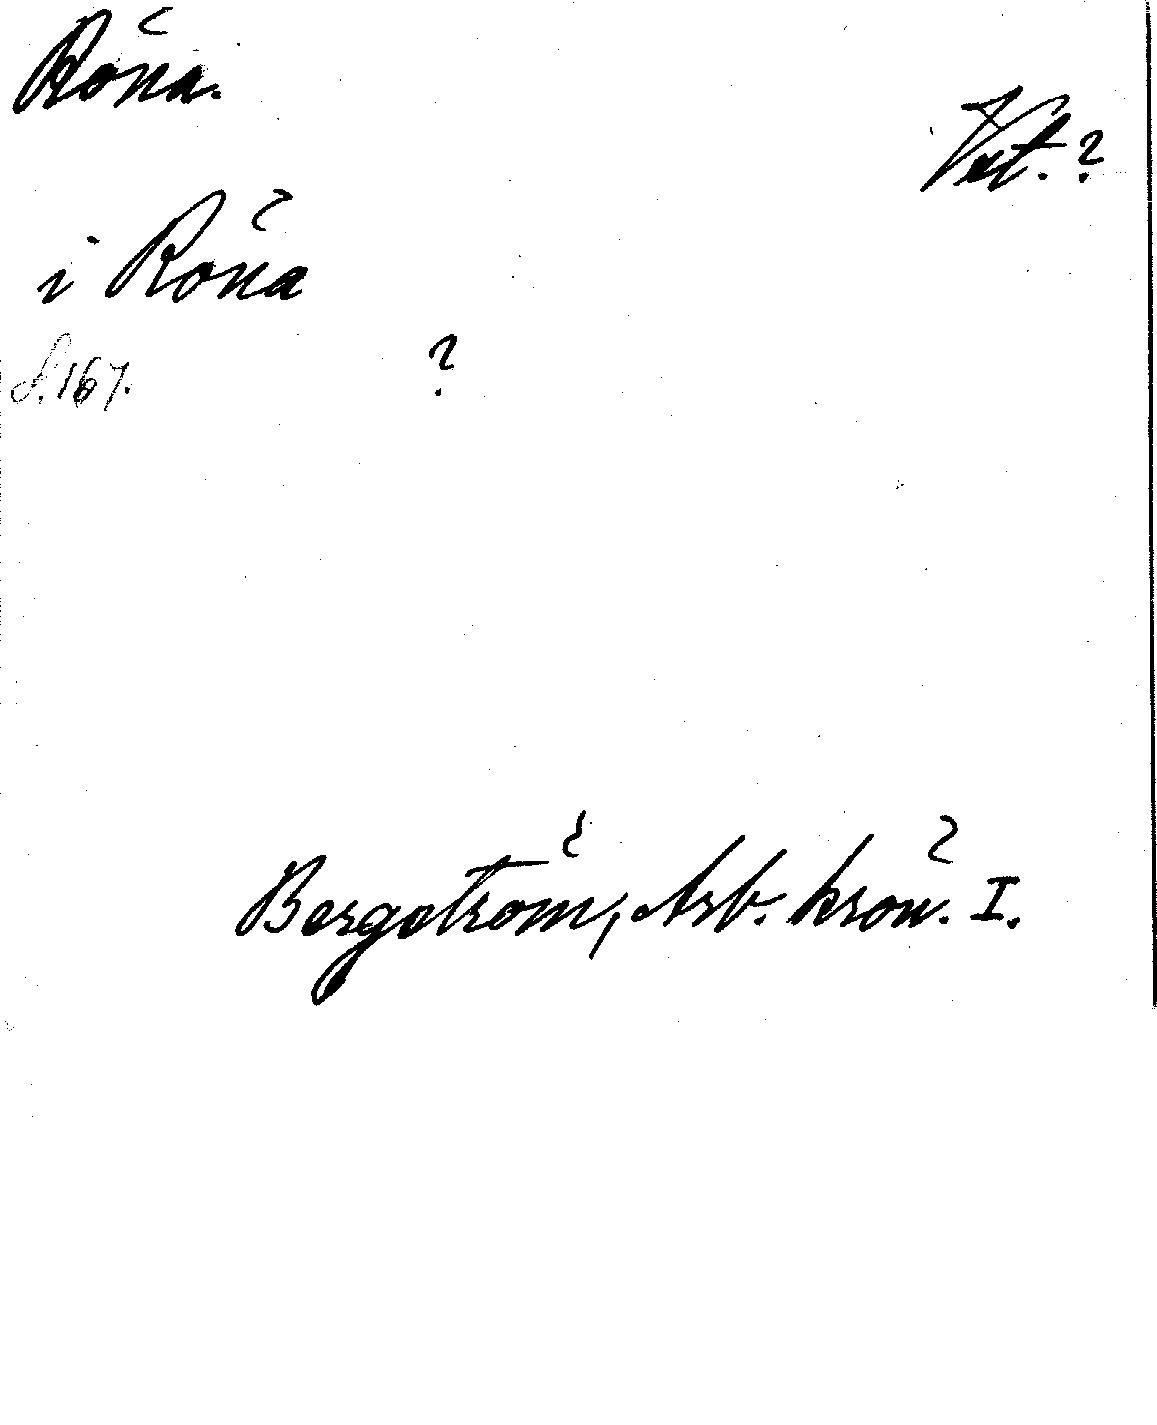 Röna.
Vst.?
i Röna
S. 167.
?
Bergström, Arb. krön. I.